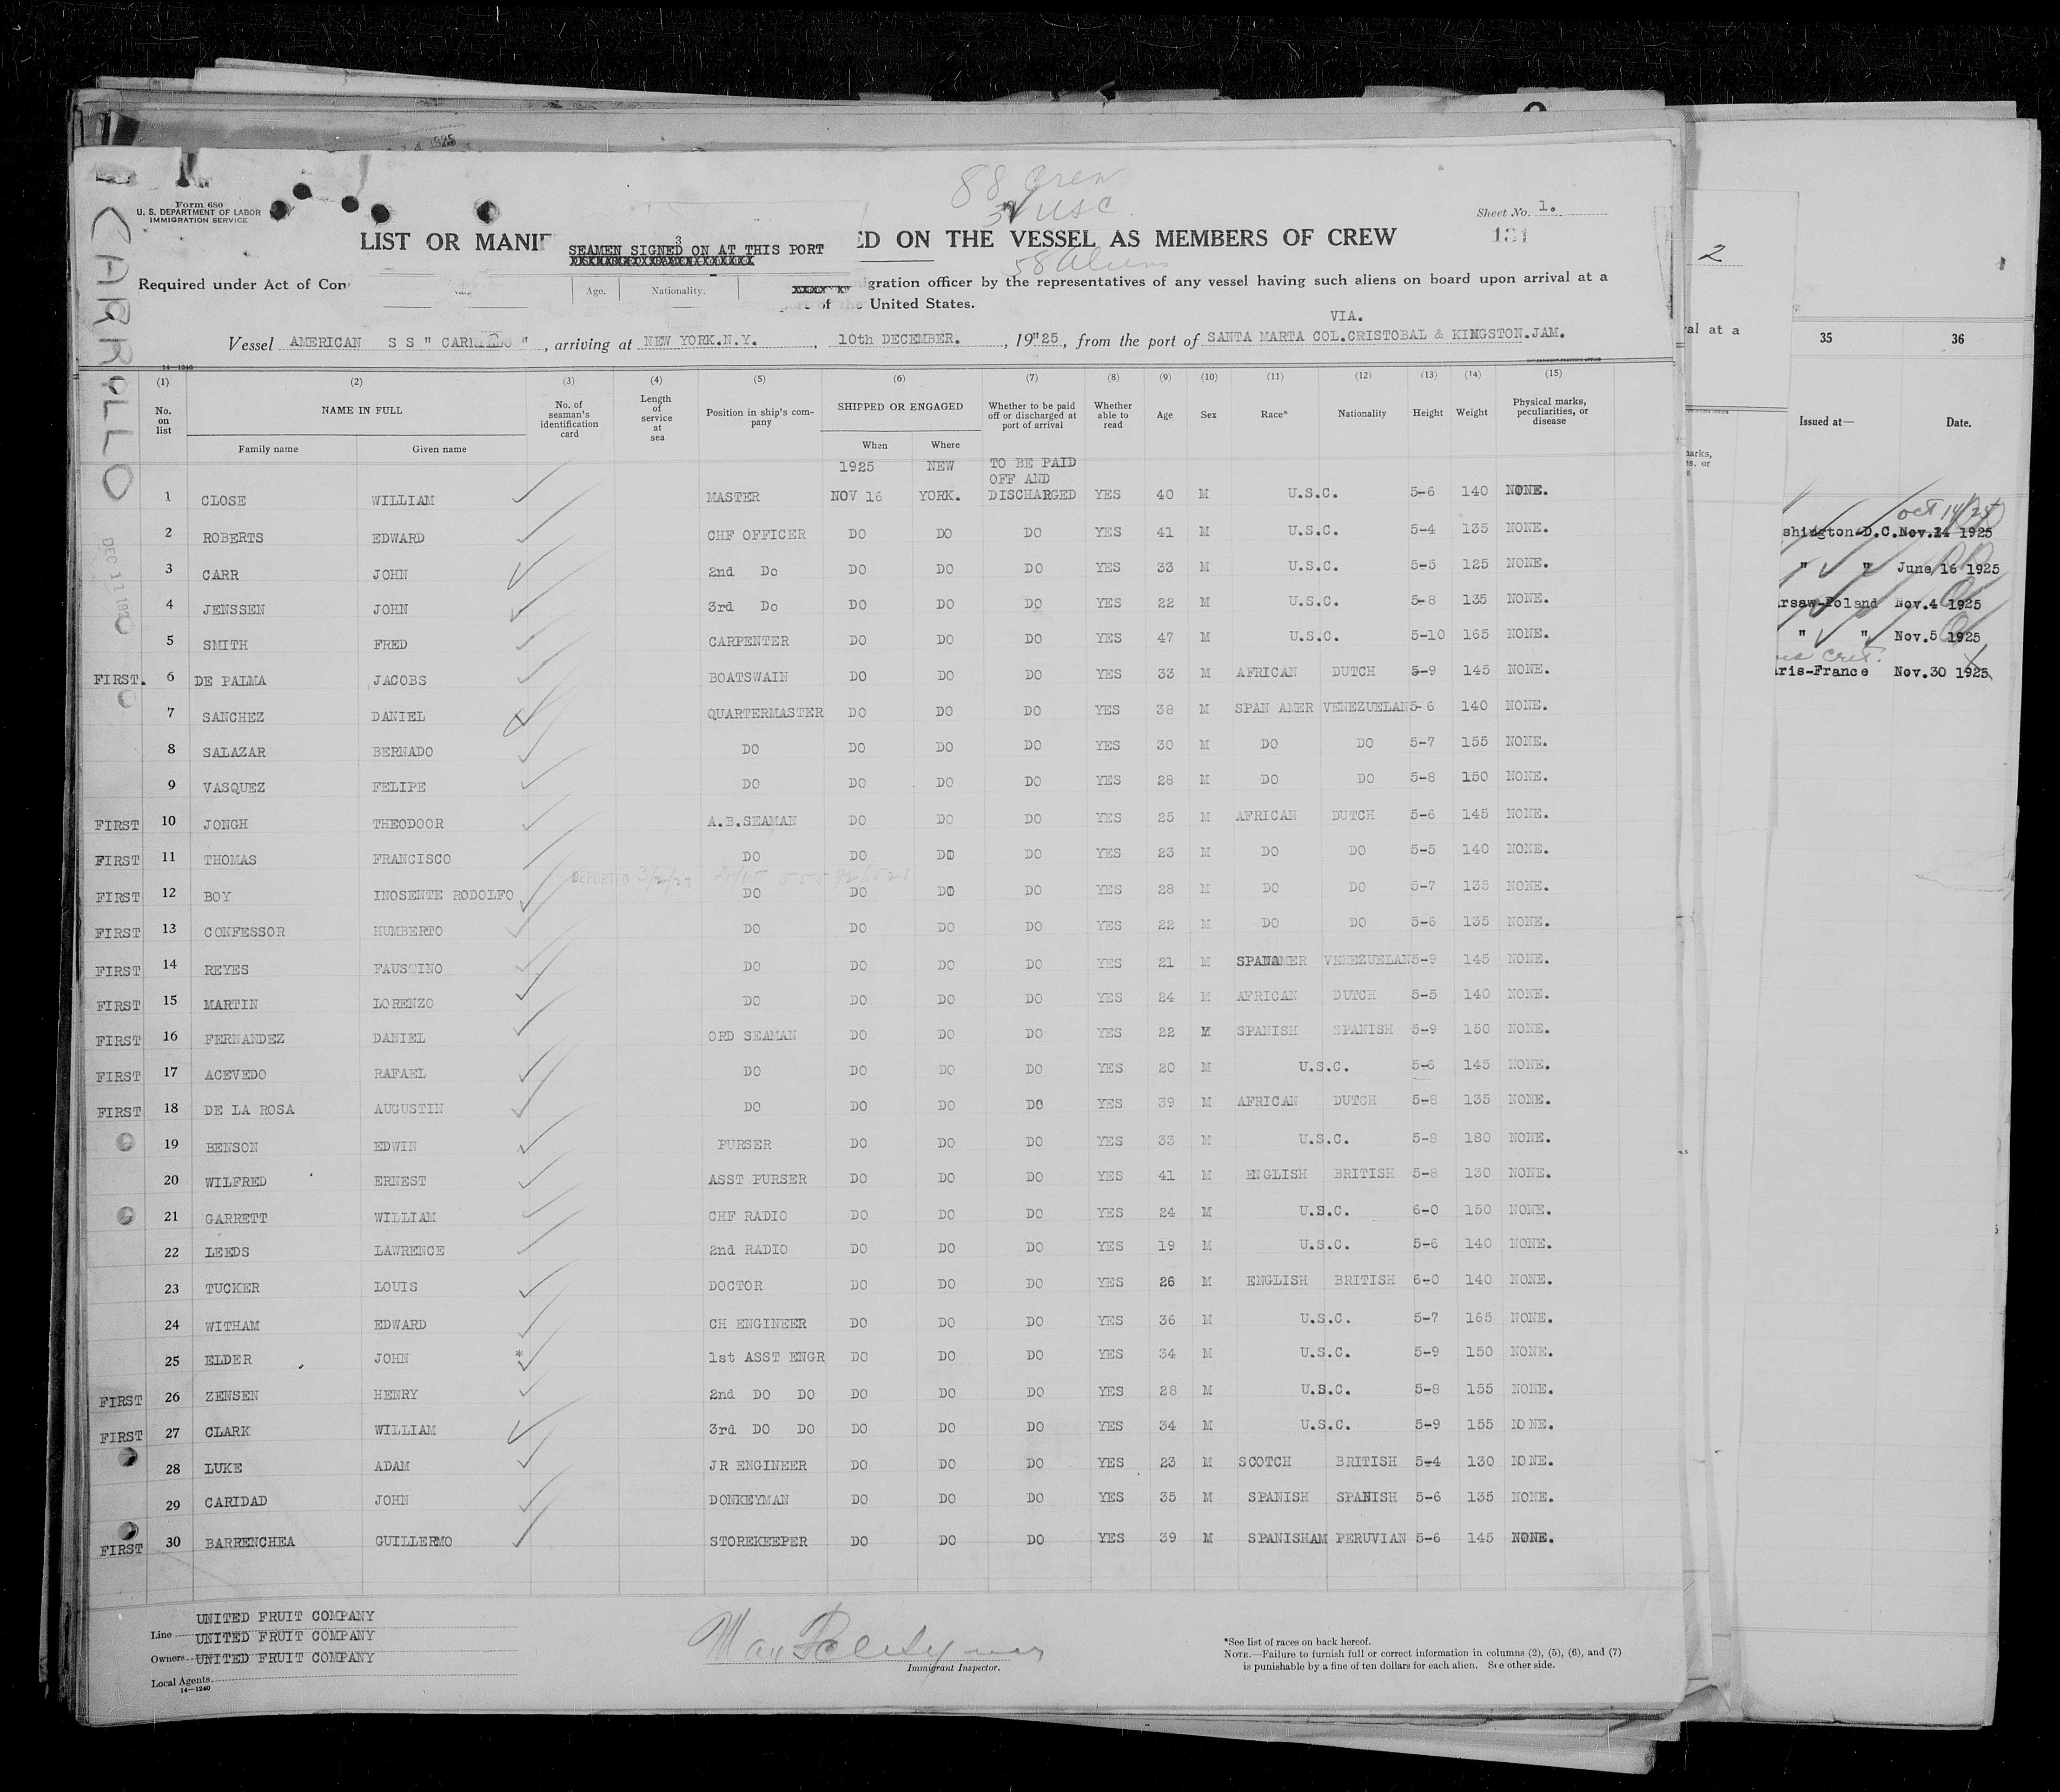 88 Crew
USC
58 Aliens
Form 680
U. S. DEPARTMENT OF LABOR
IMMIGRATION SERVICE
Sheet No. 1.
131
LIST OR MANIF
3
SEAMEN SIGNED ON AT THIS PORT
ED ON THE VESSEL AS MEMBERS OF CREW
Required under Act of Con
Age. Nationality.
igration officer by the representatives of any vessel having such aliens on board upon arrival at a
of the United States.
VIA.
Vessel AMERICAN S S " CARRILLO ", arriving at NEW YORK.N.Y., 10th DECEMBER., 19"25, from the port of SANTA MARTA COL.CRISTOBAL & KINGSTON.JAM.
CARRILLO
DEC 11 192
14—1240
(1) (2) (3) (4) (5) (6) (7) (8) (9) (10) (11) (12) (13) (14) (15)
No. on list NAME IN FULL No. of seaman's identification card Length of service at sea Position in ship's company SHIPPED OR ENGAGED Whether to be paid off or discharged at port of arrival Whether able to read Age Sex Race* Nationality Height Weight Physical marks, peculiarities, or disease
Family name Given name When Where
1925 NEW TO BE PAID
OFF AND
1 CLOSE WILLIAM MASTER NOV 16 YORK. DISCHARGED YES 40 M U.S.C. 5-6 140 NONE.
2 ROBERTS EDWARD CHF OFFICER DO DO DO YES 41 M U.S.C. 5-4 135 NONE.
3 CARR JOHN 2nd Do DO DO DO YES 33 M U.S.C. 5-5 125 NONE.
4 JENSSEN JOHN 3rd Do DO DO DO YES 22 M U.S.C. 5-8 135 NONE.
5 SMITH FRED CARPENTER DO DO DO YES 47 M U.S.C. 5-10 165 NONE.
FIRST. 6 DE PALMA JACOBS BOATSWAIN DO DO DO YES 33 M AFRICAN DUTCH 5-9 145 NONE.
7 SANCHEZ DANIEL QUARTERMASTER DO DO DO YES 38 M SPAN AMER VENEZUELAN 5-6 140 NONE.
8 SALAZAR BERNADO DO DO DO DO YES 30 M DO DO 5-7 155 NONE.
9 VASQUEZ FELIPE DO DO DO DO YES 28 M DO DO 5-8 150 NONE.
FIRST 10 JONGH THEODOOR A.B.SEAMAN DO DO DO YES 25 M AFRICAN DUTCH 5-6 145 NONE.
FIRST 11 THOMAS FRANCISCO DO DO DO DO YES 23 M DO DO 5-5 140 NONE.
DEPORTED 3/2/27
FIRST 12 BOY INOSENTE RODOLFO DO DO DO DO YES 28 M DO DO 5-7 135 NONE.
FIRST 13 CONFESSOR HUMBERTO DO DO DO DO YES 22 M DO DO 5-6 135 NONE.
FIRST 14 REYES FAUSTINO DO DO DO DO YES 21 M SPANAMER VENEZUELAN 5-9 145 NONE.
FIRST 15 MARTIN LORENZO DO DO DO DO YES 24 M AFRICAN DUTCH 5-5 140 NONE.
FIRST 16 FERNANDEZ DANIEL ORD SEAMAN DO DO DO YES 22 M SPANISH SPANISH 5-9 150 NONE.
FIRST 17 ACEVEDO RAFAEL DO DO DO DO YES 20 M U.S.C. 5-6 145 NONE.
FIRST 18 DE LA ROSA AUGUSTIN DO DO DO DO YES 39 M AFRICAN DUTCH 5-8 135 NONE.
19 BENSON EDWIN PURSER DO DO DO YES 33 M U.S.C. 5-8 180 NONE.
20 WILFRED ERNEST ASST PURSER DO DO DO YES 41 M ENGLISH BRITISH 5-8 130 NONE.
21 GARRETT WILLIAM CHF RADIO DO DO DO YES 24 M U.S.C. 6-0 150 NONE.
22 LEEDS LAWRENCE 2nd RADIO DO DO DO YES 19 M U.S.C. 5-6 140 NONE.
23 TUCKER LOUIS DOCTOR DO DO DO YES 26 M ENGLISH BRITISH 6-0 140 NONE.
24 WITHAM EDWARD CH ENGINEER DO DO DO YES 36 M U.S.C. 5-7 165 NONE.
25 ELDER JOHN * 1st ASST ENGR DO DO DO YES 34 M U.S.C. 5-9 150 NONE.
FIRST 26 ZENSEN HENRY 2nd DO DO DO DO DO YES 28 M U.S.C. 5-8 155 NONE.
FIRST 27 CLARK WILLIAM 3rd DO DO DO DO DO YES 34 M U.S.C. 5-9 155 NONE.
28 LUKE ADAM JR ENGINEER DO DO DO YES 23 M SCOTCH BRITISH 5-4 130 NONE.
29 CARIDAD JOHN DONKEYMAN DO DO DO YES 35 M SPANISH SPANISH 5-6 135 NONE.
FIRST 30 BARRENCHEA GUILLERMO STOREKEEPER DO DO DO YES 39 M SPANISHAM PERUVIAN 5-6 145 NONE.
UNITED FRUIT COMPANY
Line UNITED FRUIT COMPANY
Owners UNITED FRUIT COMPANY
Local Agents
14—1240
Immigrant Inspector.
*See list of races on back hereof.
NOTE.—Failure to furnish full or correct information in columns (2), (5), (6), and (7)
is punishable by a fine of ten dollars for each alien. See other side.
2
al at a
35 36
Issued at— Date.
arks,
s, or
Oct 14/25
shington-D.C. Nov.24 1925
" " June 16 1925
rsaw-Poland Nov.4 1925
" " Nov.5 1925
ris-France Nov.30 1925